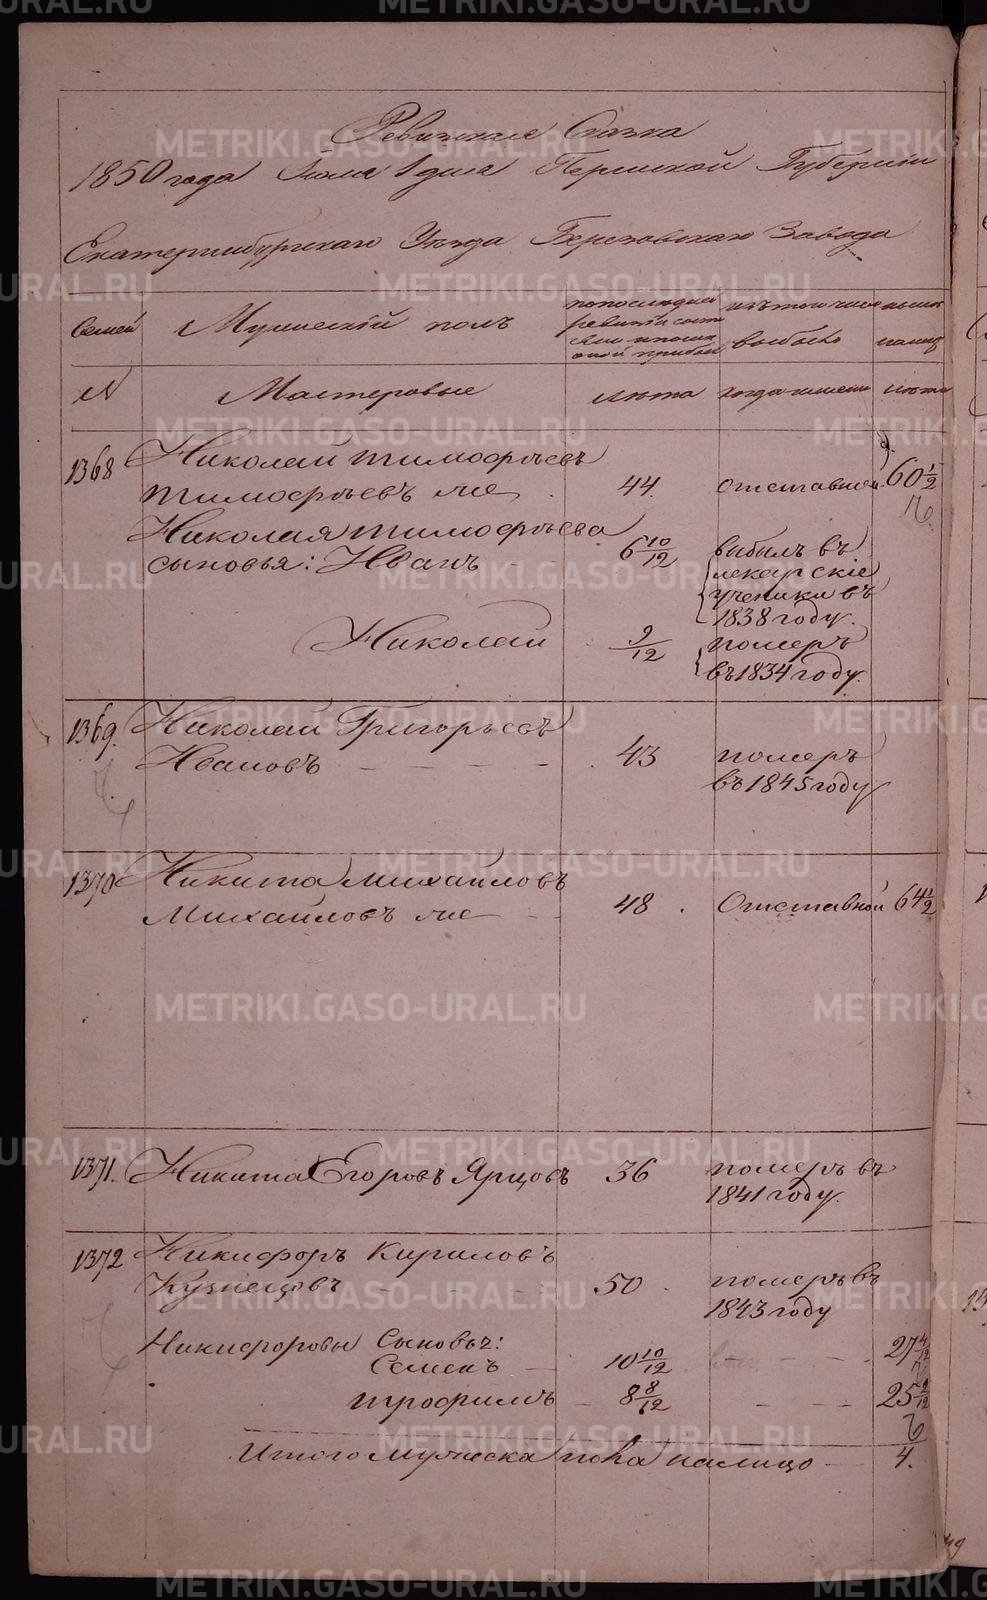 Ревизская Сказка
1850 года Июля 1 дня Пермской Губернии
Екатеринбургскаго Уезда Березовскаго Завода
Семей
Мужескій полъ
по последней
ревизіи состо
изъ того числа
выбыло
ныне
налиц
N
Мастеровые
лета
когда именно
лета
1368
Николай Тимофеевъ
Тимофеевъ же
44.
отставной
60 1/2
Николая Тимофеева
сыновья: Иванъ
6 10/12
выбылъ въ
лекарскіе
ученики въ
1838 году.
Николай
9/12
померъ
въ 1834 году.
1369.
Николай Григорьевъ
Ивановъ
43
померъ
въ 1845 году
1370
Никита Михайловъ
Михайловъ же
48
Отставной
64 1/2
1371.
Никита Егоровъ Ярцовъ
36
померъ въ
1841 году.
1372
Никифоръ Кириловъ
Кузнецовъ
50
померъ въ
1843 году
Никифоровы Сыновья:
Семенъ
10 10/12
27 4/12
Трофимъ
8 8/12
25
Итого мужеска пола налицо
4.
METRIKI.GASO-URAL.RU